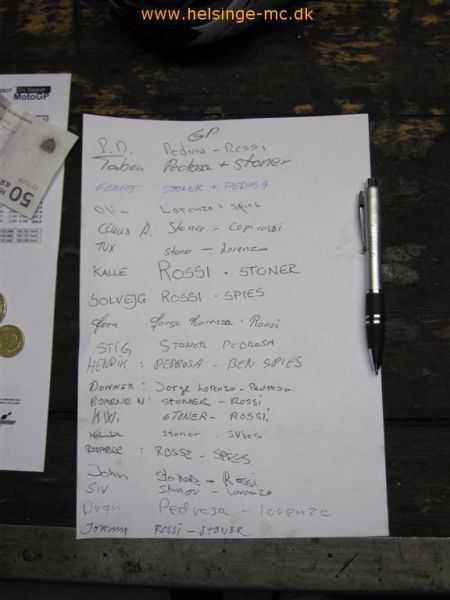 www.helsinge-mc.dk
MotoGP
50
KR
GP
P.D. Pedrosa - Rossi
Torben Pedrosa + Stoner
STONER + PEDROSA
Ole Lorenzo + Spies
Claus A. Stoner - Capirossi
TUX stoner - Lorenzo
KALLE ROSSI - STONER
SOLVEJG ROSSI - SPIES
Jørn Jorge Lorenzo - Rossi
STIG STONER PEDROSA
HENRIK : PEDROSA - BEN SPIES
DONNER : Jorge Lorenzo - Pedrosa
BJARNE N : STONER - ROSSI
K.W. STONER - ROSSI.
stoner - spies
: ROSSI - SPIES
John Stoner - Rossi
Siv Stoner - Lorenzo
Pedrosa - lorenzo
Johnny ROSSI - STONER